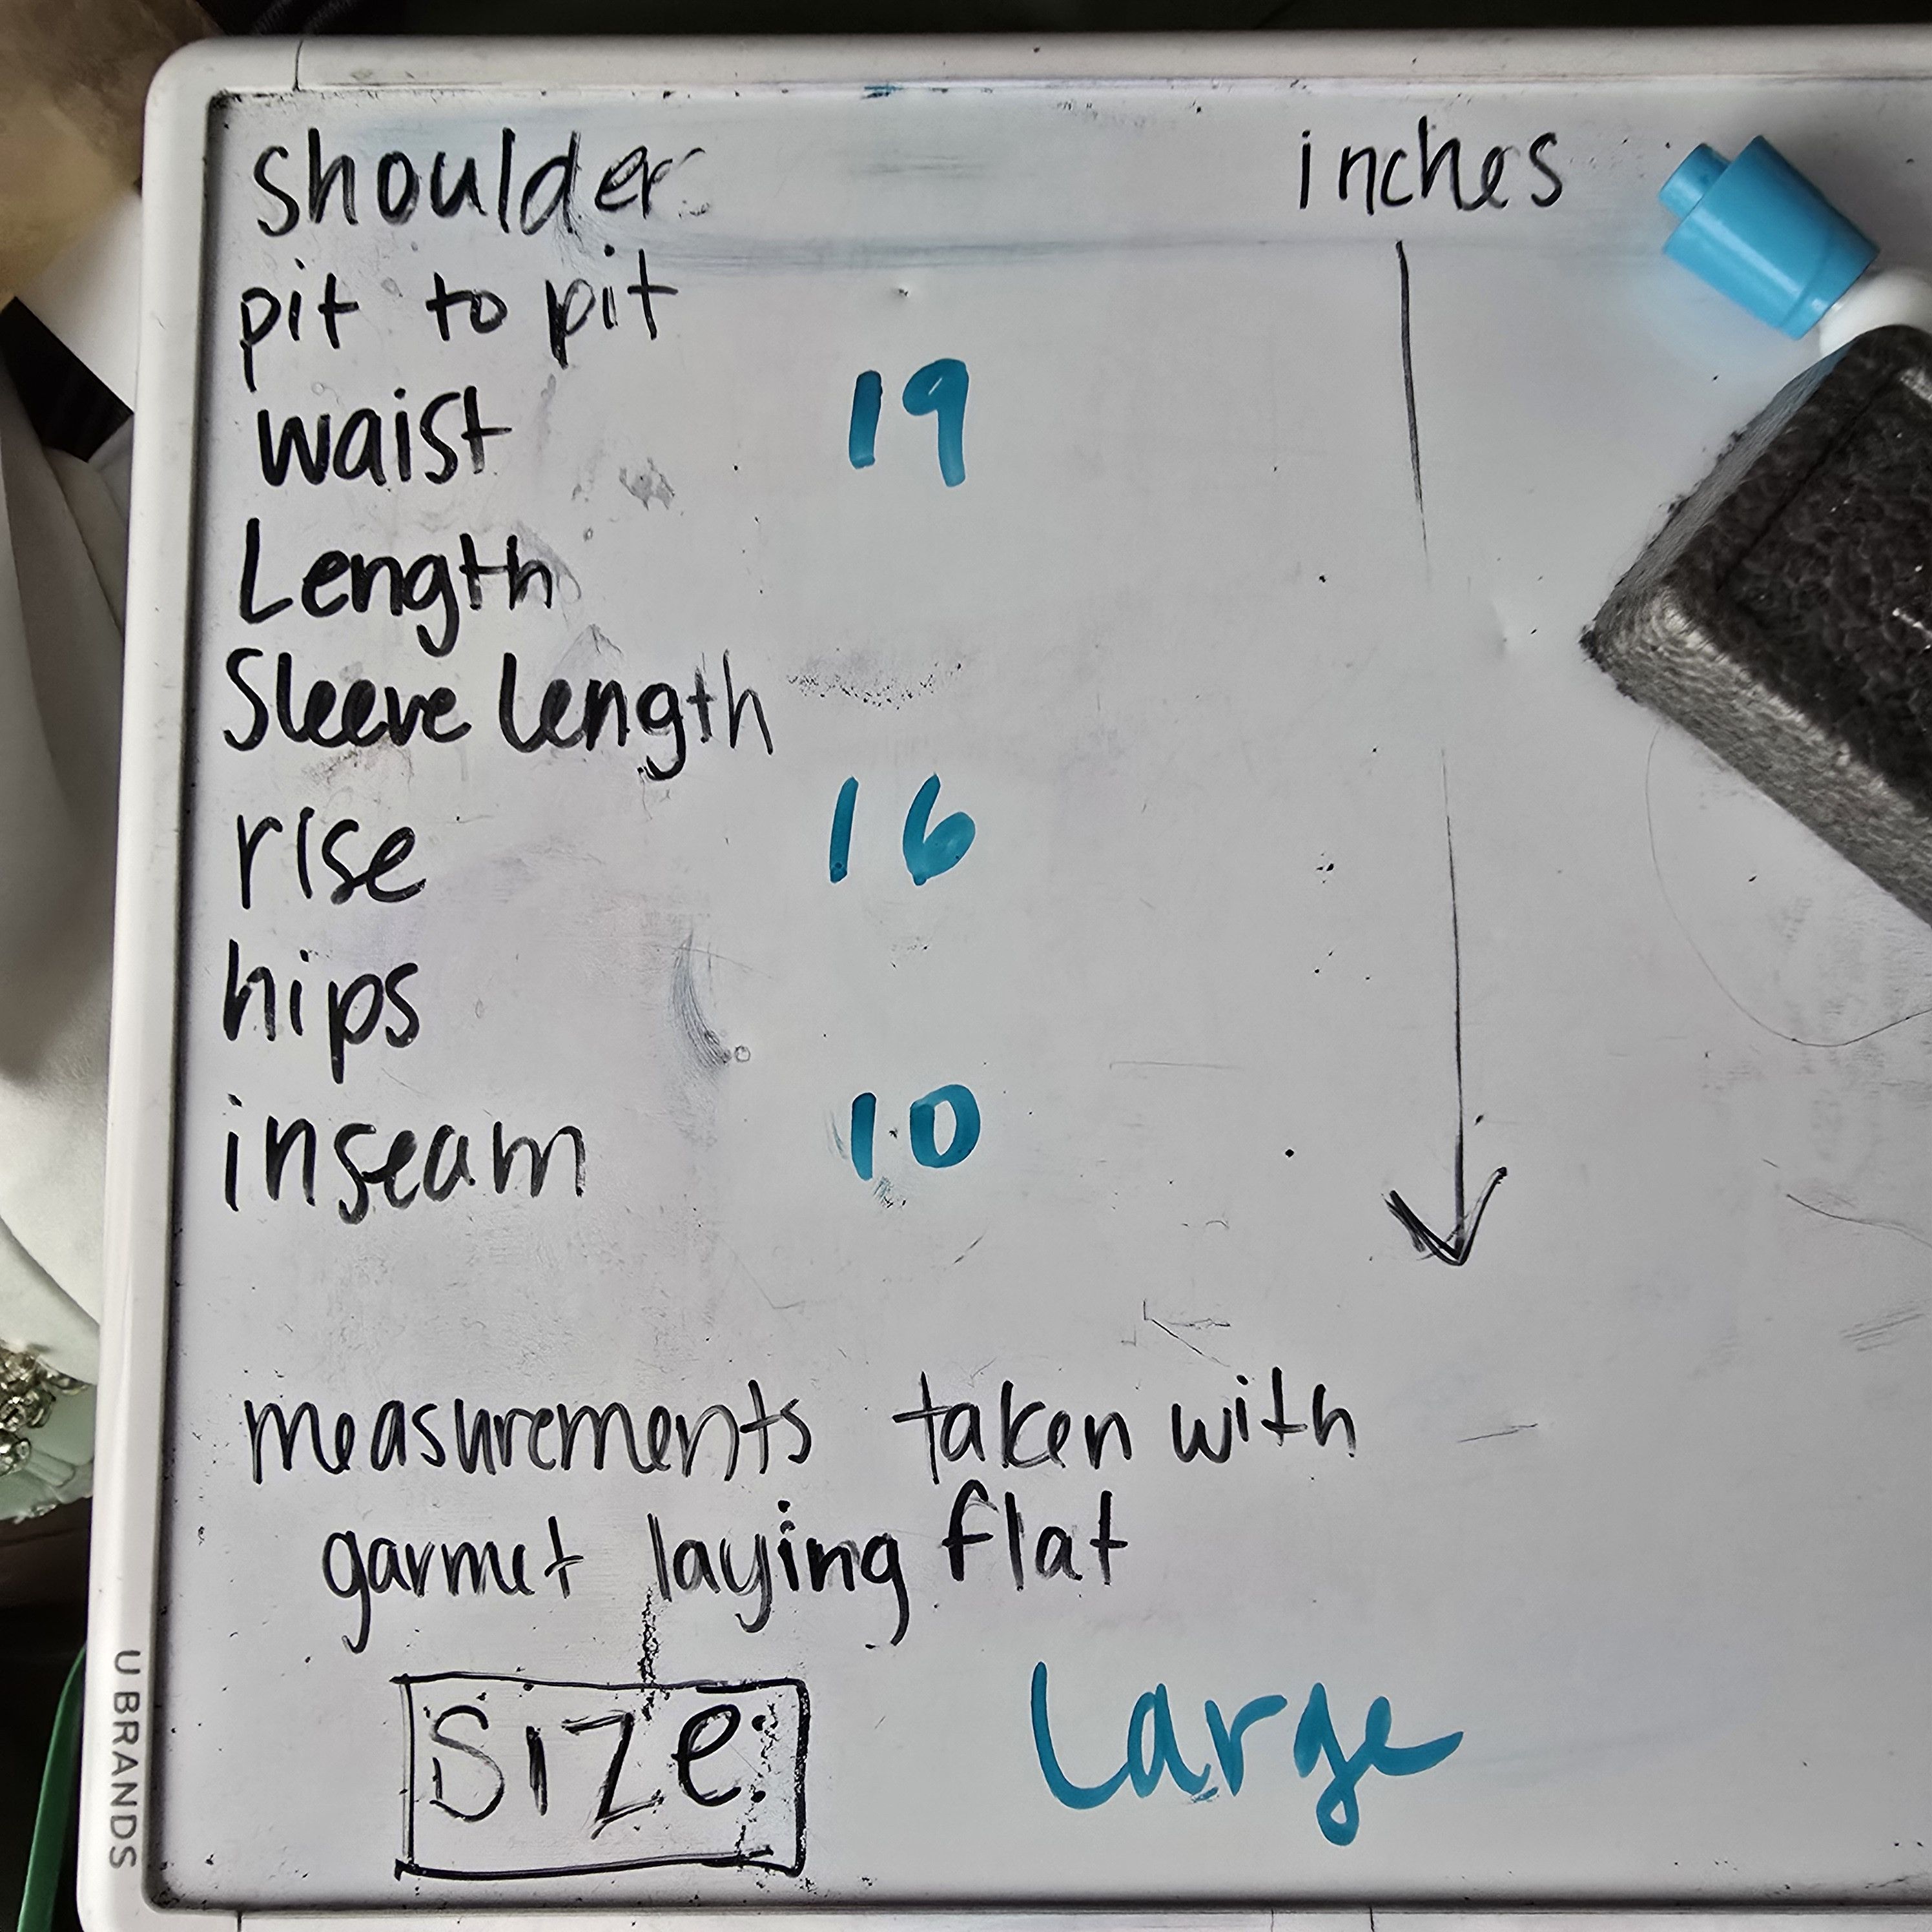 shoulder inches
pit to pit
waist 19
Length
Sleeve length
rise 16
hips
inseam 10
measurements taken with
garmet laying flat
Size: Large
U BRANDS